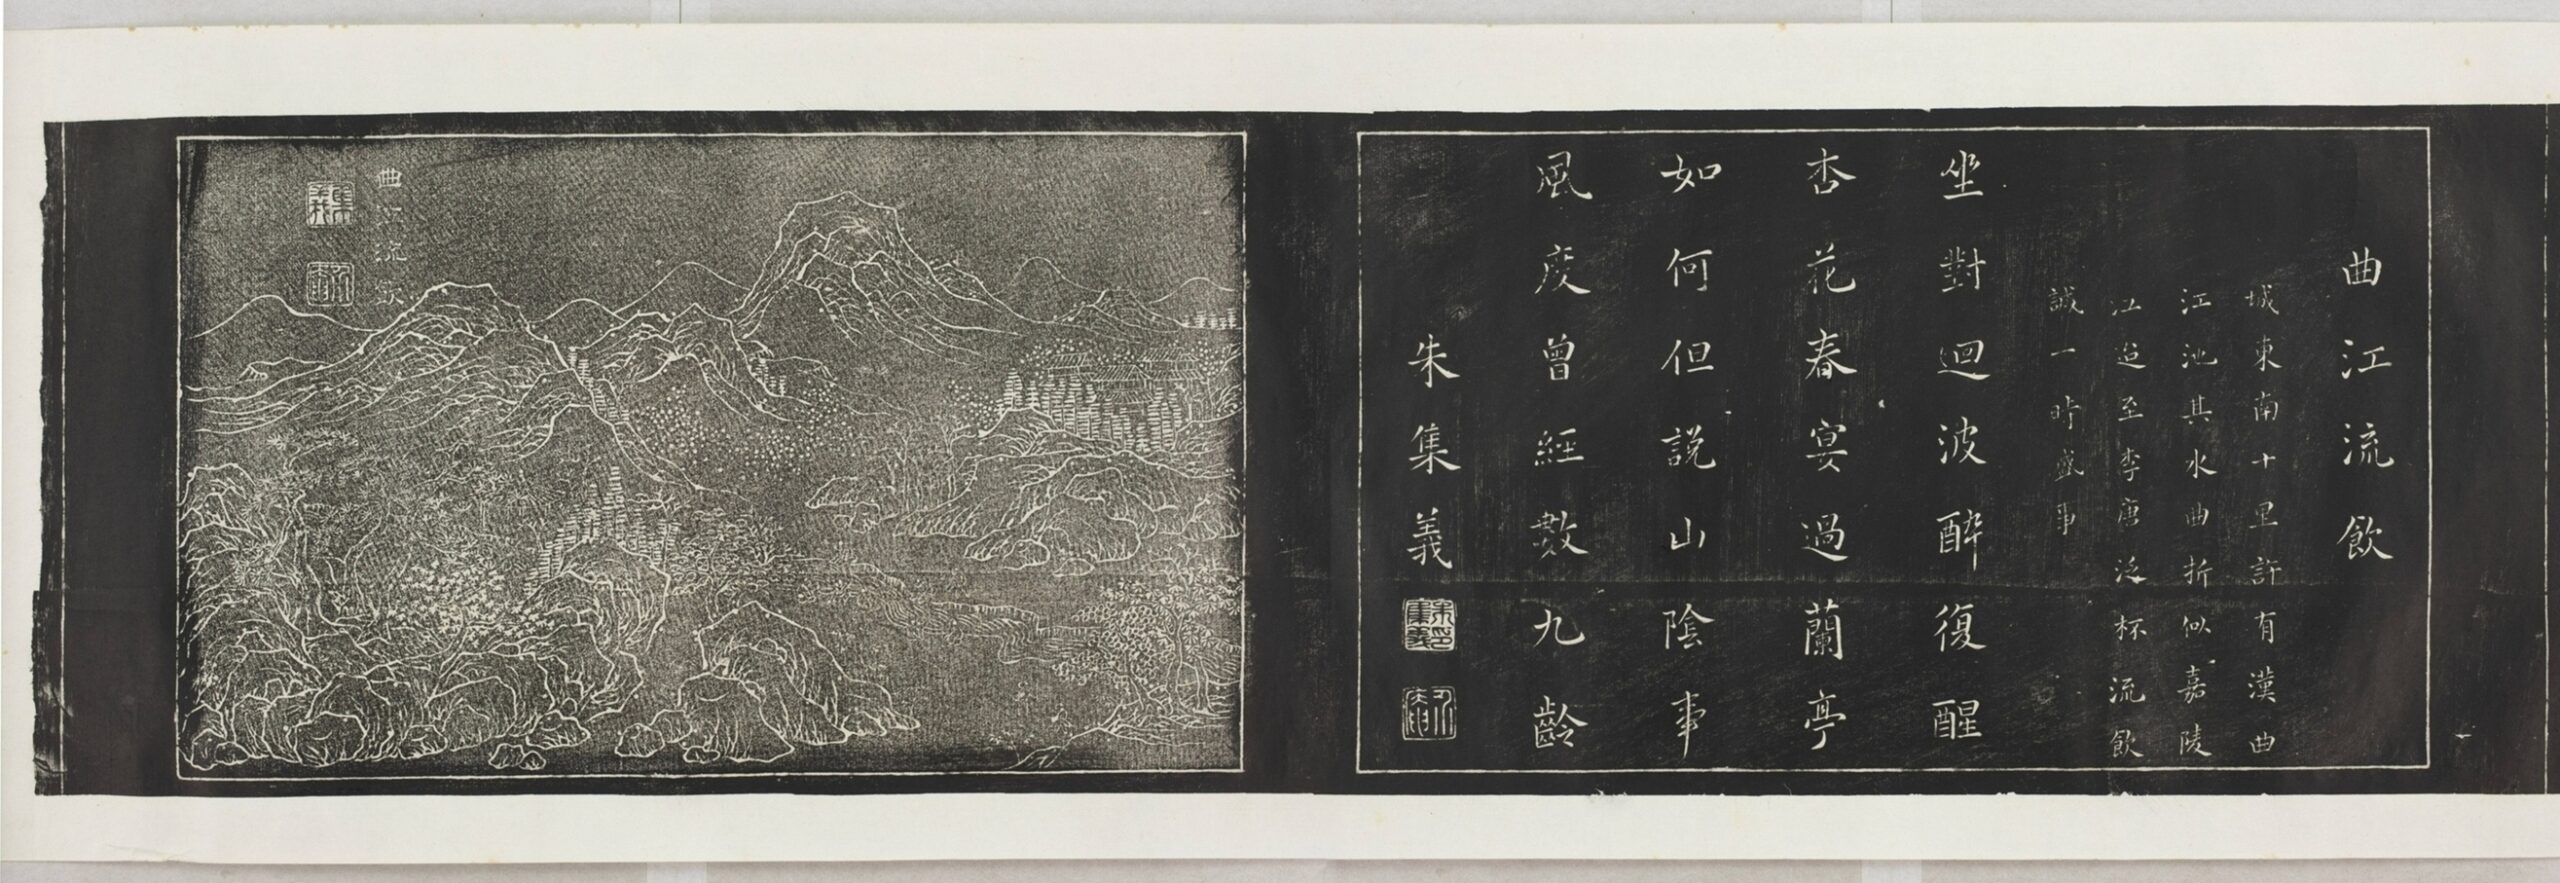 曲江流飲
城東南十里許有漢曲
江池其水曲折似嘉陵
江迨至李唐泛杯流飲
誠一時盛事
坐對迴波醉復醒
杏花春宴過蘭亭
如何但說山陰事
風度曾經數九齡
朱集義
朱集義印
曲江流飲
集義